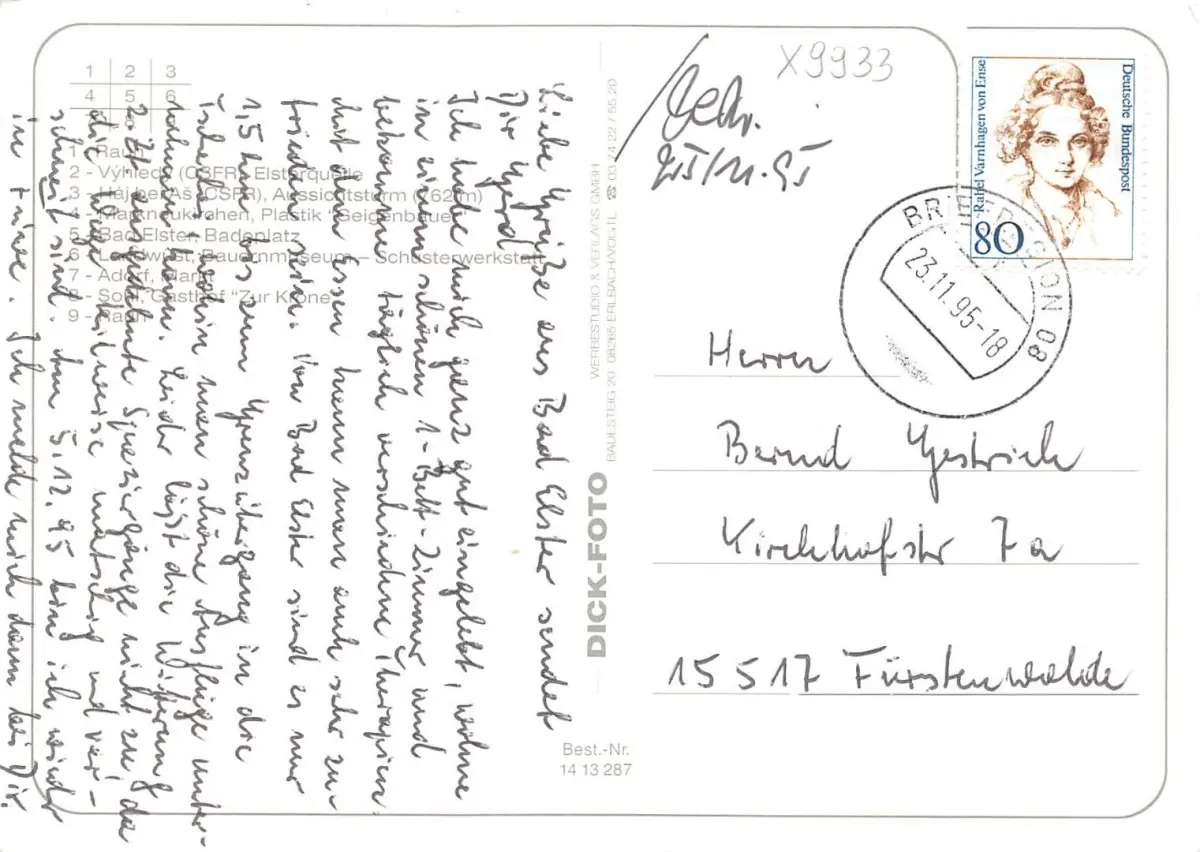 1 2 3
4 5 6
1 - Raun
2 - Výhledy (CSFR), Elsterquelle
3 - Háj bei Aš (CSFR), Aussichtsturm
4 - Markneukirchen, Plastik "Geigenbauer"
5 - Bad Elster, Badeplatz
6 - Landwüst, Bauernmuseum – Schusterwerkstatt
7 - Adorf, Markt
8 - Sohl, Gasthof "Zur Krone"
9 - Raun
Liebe Grüße aus Bad Elster sendet
Dir Gerd
Ich habe mich ganz gut eingelebt, wohne
in einem schönen 1-Bett-Zimmer und
bekomme täglich verschiedene Therapien.
Mit dem Essen kann man auch sehr zu-
frieden sein. Von Bad Elster sind es nur
1,5 km bis zum Grenzübergang in die
wohin man schöne Ausflüge unter-
nehmen kann. Leider läßt die Witterung
ausgedehnte Spaziergänge nicht zu, da
die Wege teilweise matschig und ver-
schneit sind. Am 5.12.95 bin ich wieder
in Ich melde mich dann bei Dir.
DICK-FOTO
WERBESTUDIO & VERLAGS GMBH
BADESTEIG 20 08265 ERLBACH/VOGTL. ☎ 03 74 22 / 55 20
Best.-Nr.
14 13 287
X9933
25/11.95
Deutsche Bundespost
Rahel Varnhagen von Ense
80
BRIEFREGION 08
23.11.95-18
Herrn
Bernd Gestrich
Kirchhofstr 7a
15517 Fürstenwalde